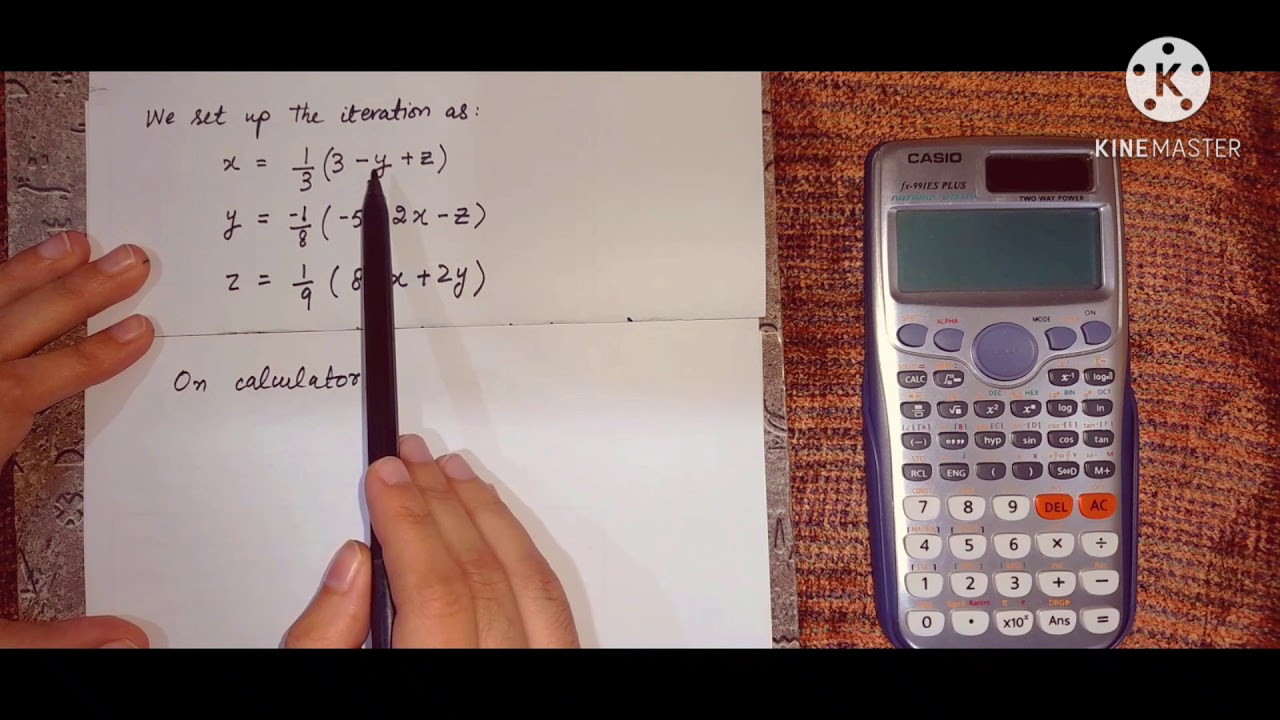 We set up the iteration as:
x = 1/3 (3 - y + z)
y = -1/8 (-5 2x - z)
z = 1/9 (8 x + 2y)
On calculator
KINEMASTER
CASIO
fx-991ES PLUS
TWO WAY POWER
ALPHA MODE ON
CALC x⁻¹
DEC HEX BIN OCT
x² log ln
(-) hyp sin cos tan
STO
RCL ENG ( ) S⇔D M+
7 8 9 DEL AC
4 5 6 × ÷
1 2 3 + −
Ran# RanInt π e DRG▶
0 . ×10ˣ Ans =